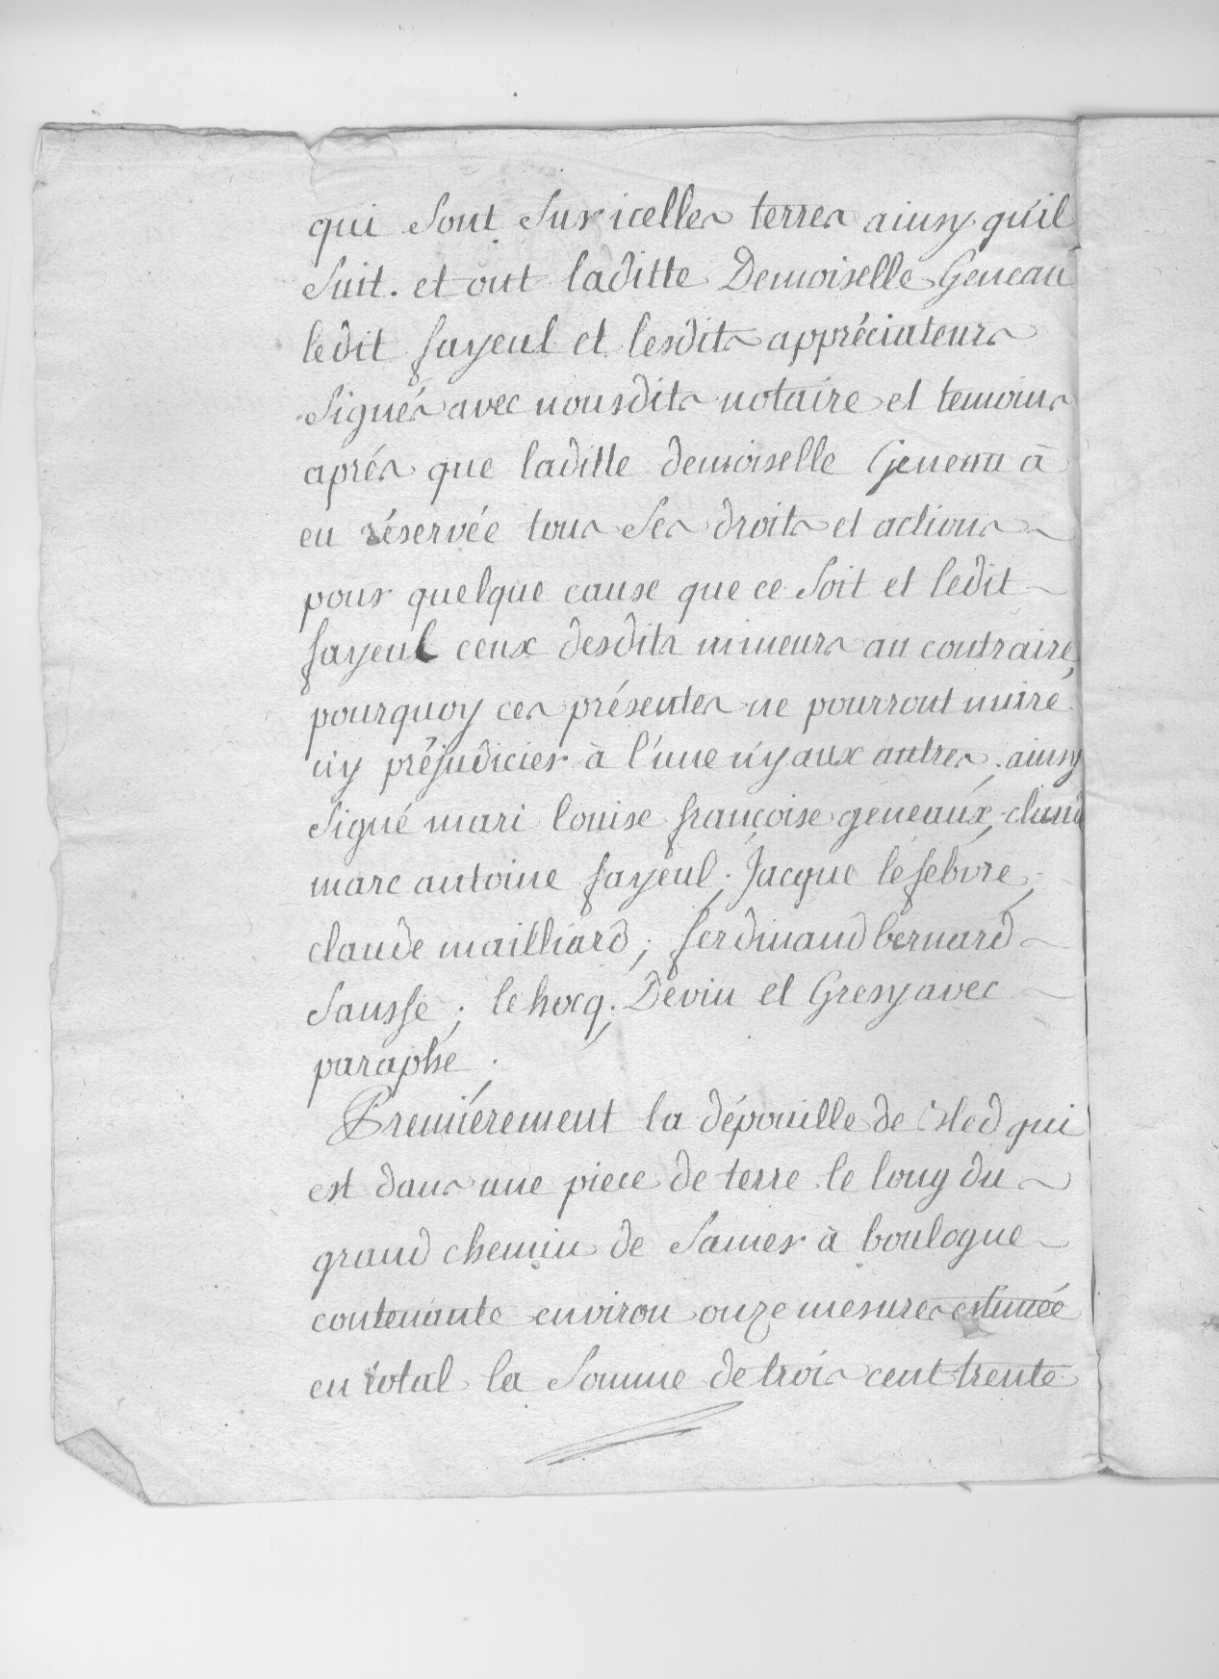 qui sont sur icelles terres ainsy qu'il
suit. et ont laditte Demoiselle Geneau
ledit fayeul et lesdits appréciateurs
signés avec nousdits notaire et temoins
aprés que laditte demoiselle Geneau à
eu réservée tous ses droits et actions
pour quelque cause que ce soit et ledit
fayeul ceux desdits mineurs au contraire,
pourquoy ces présentes ne pourront nuire
n'y préjudicier à l'une n'y aux autres; ainsy
signé mari louise françoise geneaux, claude
marc antoine fayeul; Jacque lefebvre;
claude mailliard; ferdinand bernard
sausse; lehocq; Devin et Gresy avec
paraphe.
Premiérement la dépouille de Bled qui
est dans une piece de terre le long du
grand chemin de samer à boulogne
contenante environ onze mesures estimée
en total la somme de trois cent trente